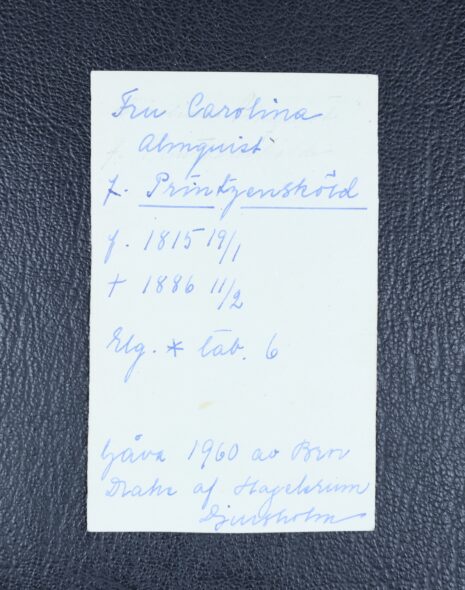 Fru Carolina
Almquist
f. Printzensköld
f. 1815 19/1
† 1886 11/2
Elg. * tab. 6
Gåva 1960 av Bror
Drake af Hagelsrum
Djursholm